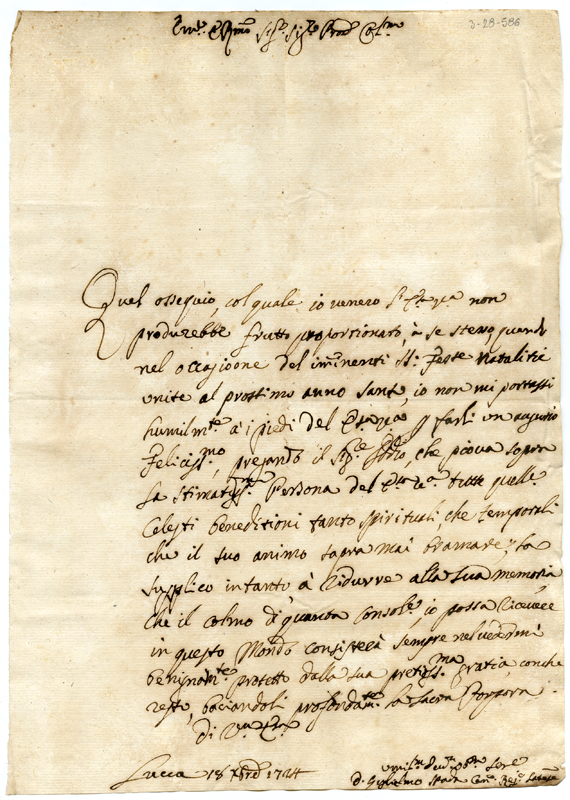 3-28-586
Em.o e R.mo Sig.r Sig.r Prōn Col.mo
Quel ossequio, col quale io venero l'E.za V.ra non
produrebbe frutto proporcionato, à se steso, quando
nel occasione del imīnenti S.te Feste Natalitie
unite al prossimo anno santo, io non mi portassi
humilm.te à i piedi del E.za V.ra p farli un augurio
Felicis.mo, pregando il Sig.re Iddio, che piova sopra
la stimatis.ma Persona del E.za V.a tutte quelle
Celesti beneditioni tanto spirituali che temporali
che il suo animo sapra mai bramare; la
supplico intanto à ridurre alla sua memoria,
che il colmo di quanta console, io possa ricevere
in questo Mondo consisterà sempre nel vedermi
benignam.te protetto dalla sua pretiosis.ma gratia, con che
resto, baciandoli profondam.te la Sacra Porpora.
Di V.ra E.za
Lucca 18 Xbre 1724
D. Guglielmo